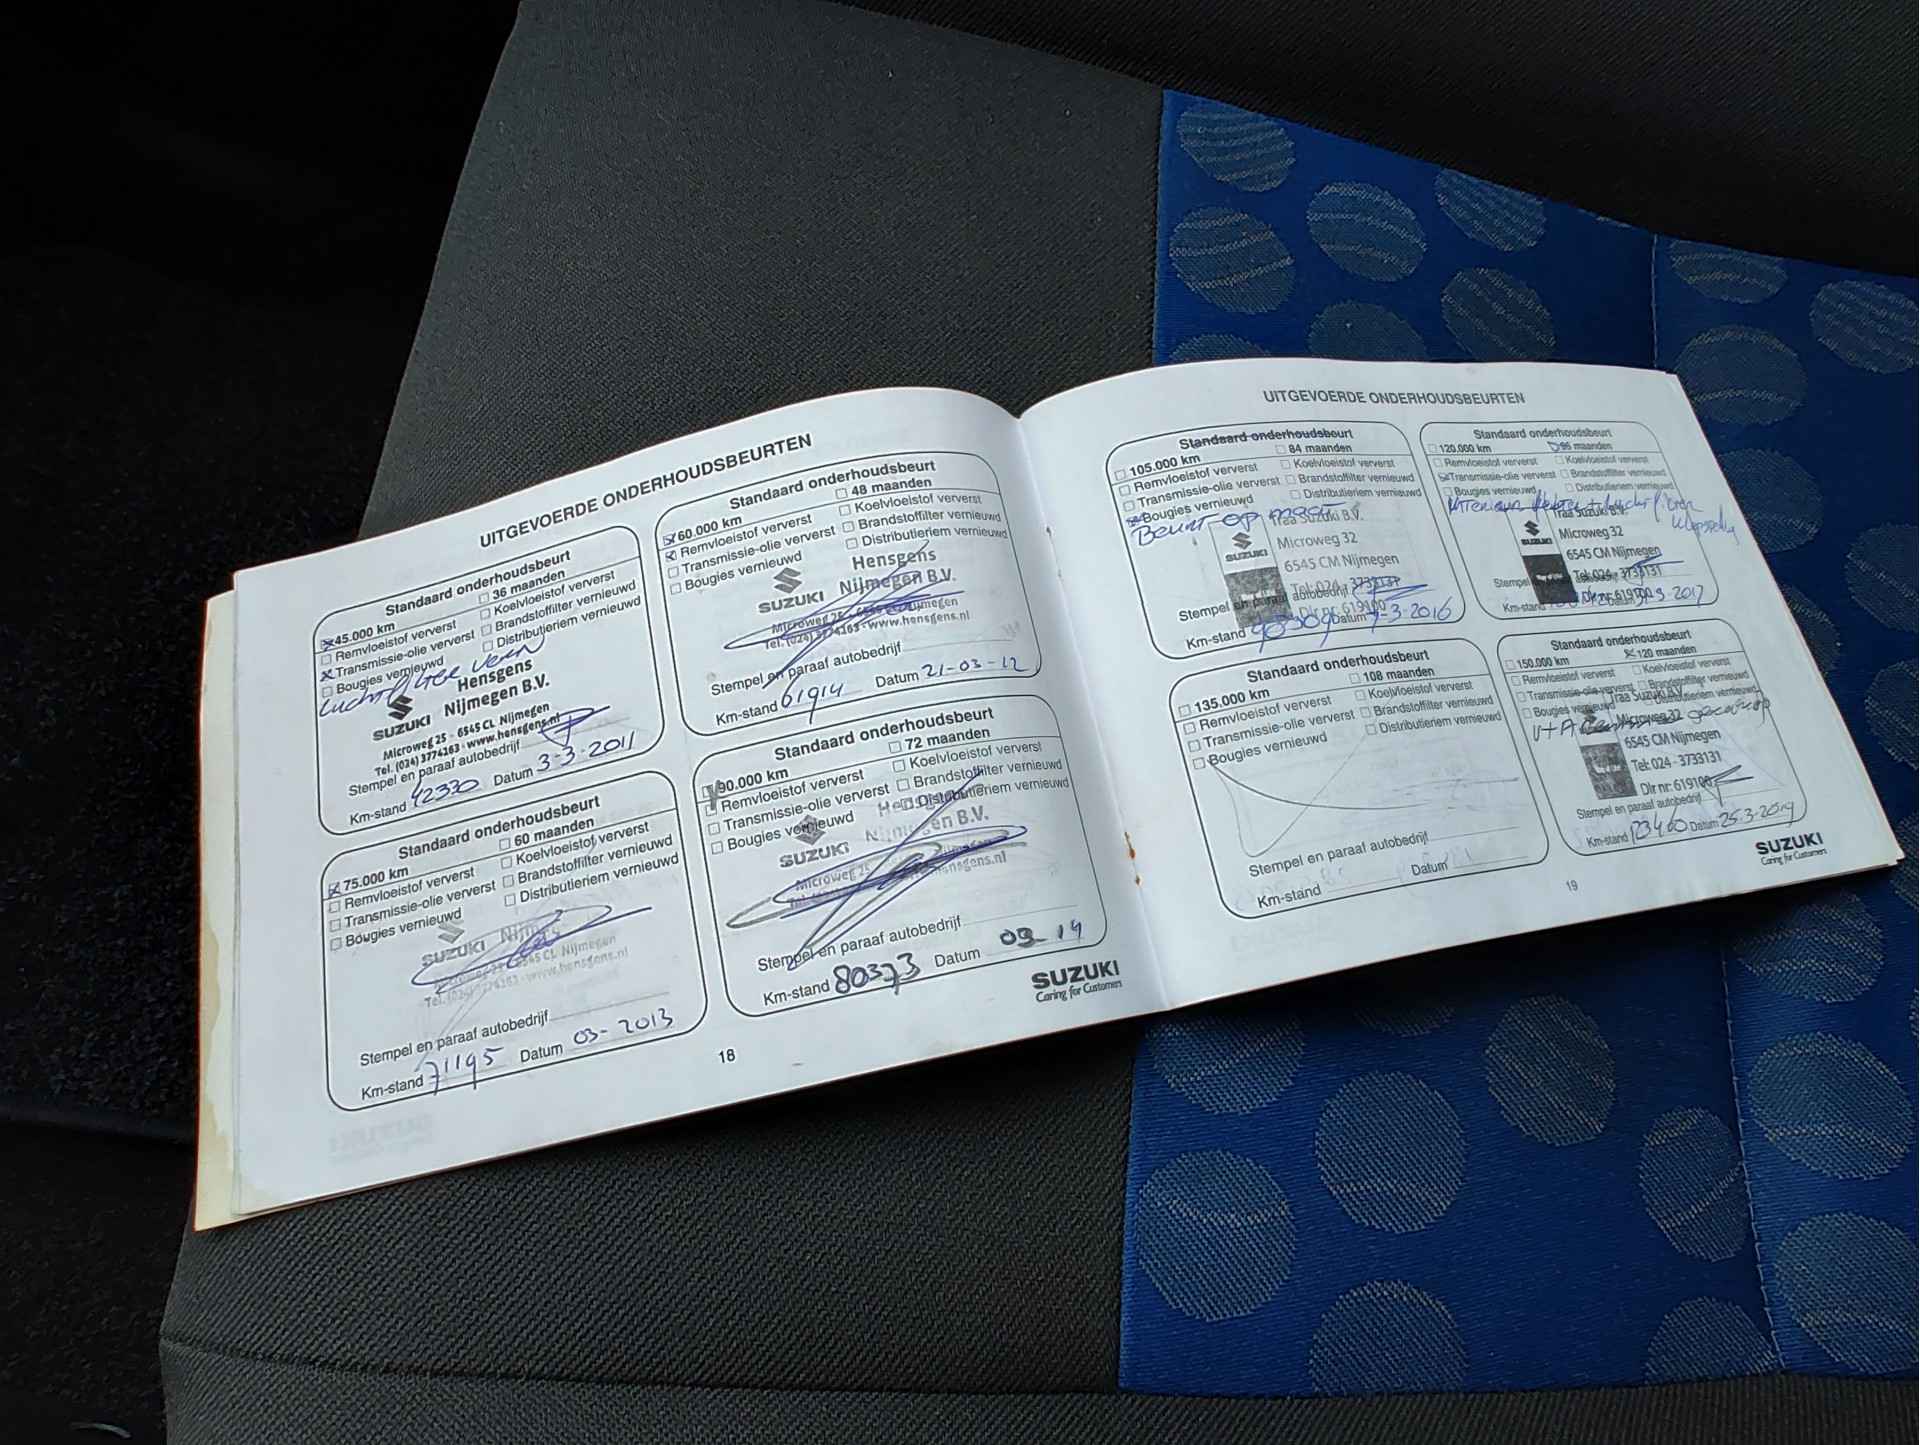 UITGEVOERDE ONDERHOUDSBEURTEN
Standaard onderhoudsbeurt
45.000 km 36 maanden
Remvloeistof ververst Koelvloeistof ververst
Transmissie-olie ververst Brandstoffilter vernieuwd
Bougies vernieuwd Distributieriem vernieuwd
Hensgens
SUZUKI Nijmegen B.V.
Microweg 25 - 6545 CL Nijmegen
Tel. (024) 3774263 - www.hensgens.nl
Stempel en paraaf autobedrijf
Km-stand 42330 Datum 3-3-2011
Standaard onderhoudsbeurt
60.000 km 48 maanden
Remvloeistof ververst Koelvloeistof ververst
Transmissie-olie ververst Brandstoffilter vernieuwd
Bougies vernieuwd Distributieriem vernieuwd
Hensgens
SUZUKI Nijmegen B.V.
Microweg 25 - 6545 CL Nijmegen
Tel. (024) 3774263 - www.hensgens.nl
Stempel en paraaf autobedrijf
Km-stand 61914 Datum 21-03-12
Standaard onderhoudsbeurt
75.000 km 60 maanden
Remvloeistof ververst Koelvloeistof ververst
Transmissie-olie ververst Brandstoffilter vernieuwd
Bougies vernieuwd Distributieriem vernieuwd
SUZUKI
Microweg 25 - 6545 CL Nijmegen
Tel. (024) 3774263 - www.hensgens.nl
Stempel en paraaf autobedrijf
Km-stand 71195 Datum 03-2013
Standaard onderhoudsbeurt
90.000 km 72 maanden
Remvloeistof ververst Koelvloeistof ververst
Transmissie-olie ververst Brandstoffilter vernieuwd
Bougies vernieuwd Distributieriem vernieuwd
Hensgens
SUZUKI Nijmegen B.V.
Microweg 25
Stempel en paraaf autobedrijf
Km-stand 80373 Datum 03-14
SUZUKI
Caring for Customers
18
UITGEVOERDE ONDERHOUDSBEURTEN
Standaard onderhoudsbeurt
105.000 km 84 maanden
Remvloeistof ververst Koelvloeistof ververst
Transmissie-olie ververst Brandstoffilter vernieuwd
Bougies vernieuwd Distributieriem vernieuwd
Beurt op maat
Traa Suzuki B.V.
Microweg 32
SUZUKI 6545 CM Nijmegen
Tel: 024 - 3733131
Stempel en paraaf autobedrijf Dlr nr: 619100
Km-stand Datum
Standaard onderhoudsbeurt
120.000 km 96 maanden
Remvloeistof ververst Koelvloeistof ververst
Transmissie-olie ververst Brandstoffilter vernieuwd
Bougies vernieuwd Distributieriem vernieuwd
Traa Suzuki B.V.
Microweg 32
SUZUKI 6545 CM Nijmegen
Tel: 024 - 3733131
Stempel Dlr nr: 619100
Km-stand Datum
Standaard onderhoudsbeurt
135.000 km 108 maanden
Remvloeistof ververst Koelvloeistof ververst
Transmissie-olie ververst Brandstoffilter vernieuwd
Bougies vernieuwd Distributieriem vernieuwd
Stempel en paraaf autobedrijf
Km-stand Datum
Standaard onderhoudsbeurt
150.000 km 120 maanden
Remvloeistof ververst Koelvloeistof ververst
Transmissie-olie ververst Brandstoffilter vernieuwd
Bougies vernieuwd Distributieriem vernieuwd
Traa Suzuki B.V.
Microweg 32
6545 CM Nijmegen
Tel: 024 - 3733131
Dlr nr: 619100
Stempel en paraaf autobedrijf
Km-stand 123400 Datum 25.3-2019
SUZUKI
Caring for Customers
19